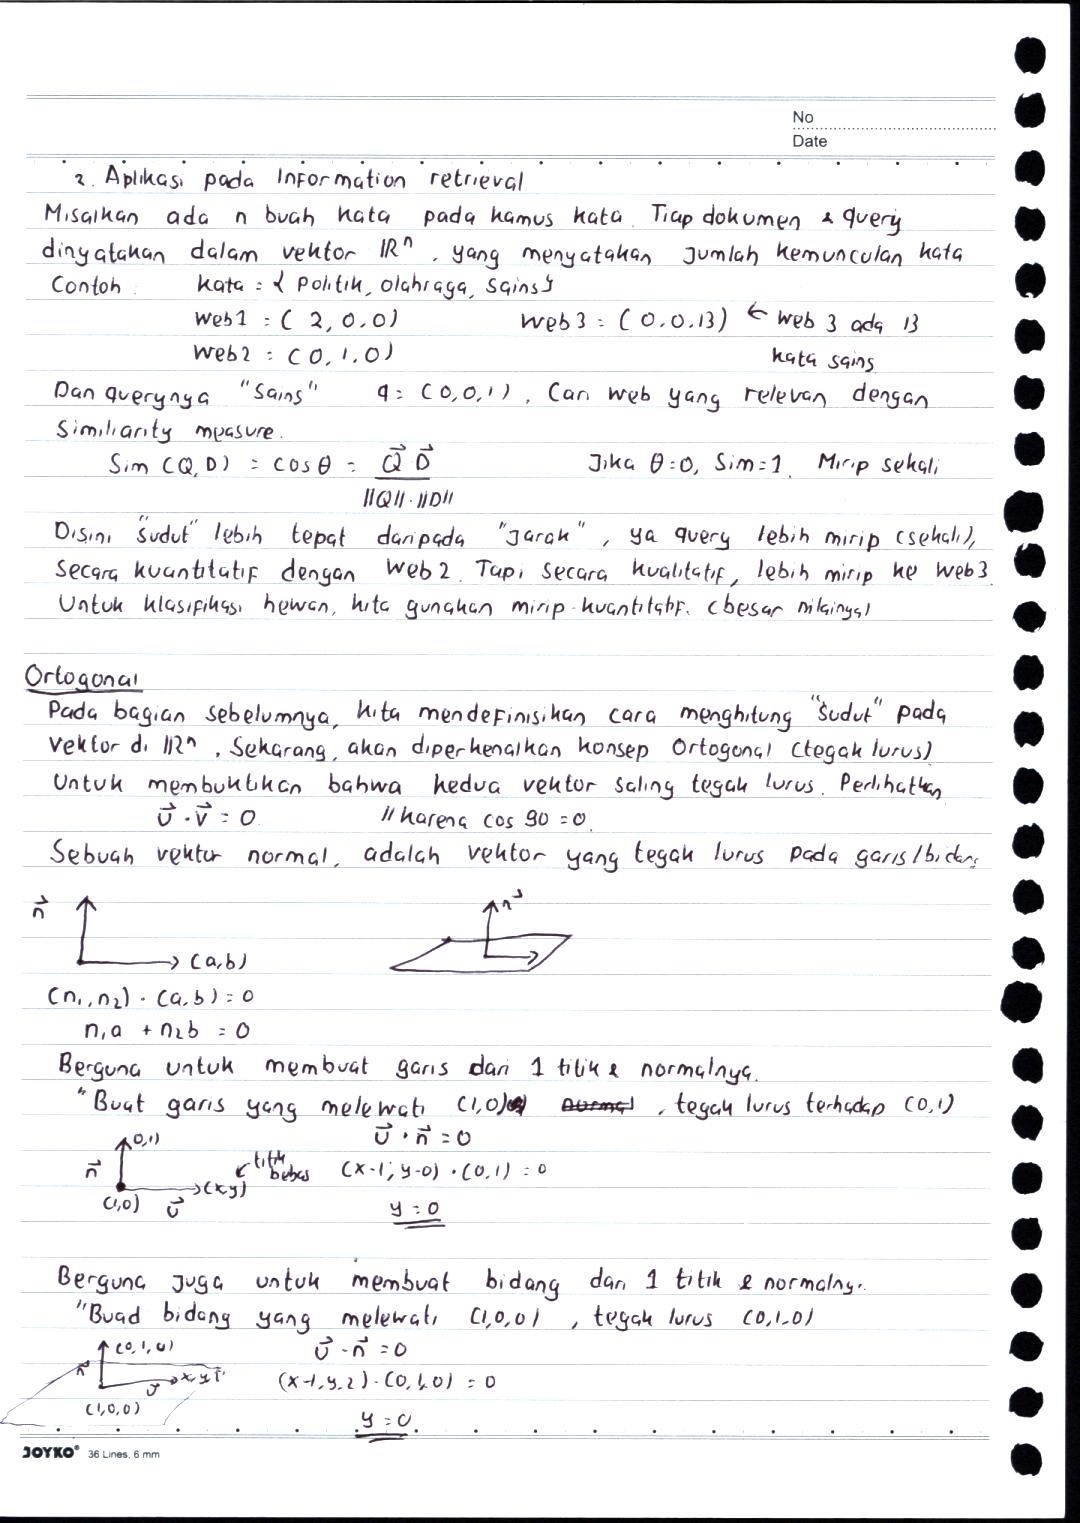 No
Date
2. Aplikasi pada Information retrieval
Misalkan ada n buah kata pada kamus kata. Tiap dokumen & query
dinyatakan dalam vektor ℝⁿ, yang menyatakan jumlah kemunculan kata
Contoh : kata = { Politik, olahraga, sains }
Web1 = ( 2, 0, 0 )   Web3 = ( 0, 0, 13 ) ← Web 3 ada 13
Web2 = ( 0, 1, 0 )   kata sains
Dan querynya "sains"   q = ( 0, 0, 1 ), Cari web yang relevan dengan
Similiarity measure.
Sim (Q, D) = cos θ = Q⃗ D⃗   Jika θ=0, Sim=1. Mirip sekali
||Q|| . ||D||
Disini "sudut" lebih tepat daripada "Jarak", ya query lebih mirip (sekali),
Secara kuantitatif dengan Web 2. Tapi secara kualitatif, lebih mirip ke Web3.
Untuk klasifikasi hewan, kita gunakan mirip-kuantitatif. (besar nilainya)
Ortogonal
Pada bagian sebelumnya, kita mendefinisikan cara menghitung "sudut" pada
Vektor di ℝⁿ, Sekarang, akan diperkenalkan konsep Ortogonal (tegak lurus)
Untuk membuktikan bahwa kedua vektor saling tegak lurus. Perlihatkan
U⃗ . V⃗ = 0.   // karena cos 90 = 0.
Sebuah vektor normal, adalah vektor yang tegak lurus pada garis/bidang
n⃗   n⃗
(a,b)
(n₁, n₂) . (a, b) = 0
n₁a + n₂b = 0
Berguna untuk membuat garis dari 1 titik & normalnya.
"Buat garis yang melewati (1,0) normal, tegak lurus terhadap (0,1)
(0,1)   U⃗ . n⃗ = 0
n⃗   titik bebas   (x-1, y-0) . (0, 1) = 0
(x,y)
(1,0)   U⃗   y = 0
Berguna juga untuk membuat bidang dari 1 titik & normalny.
"Buad bidang yang melewati (1,0,0), tegak lurus (0,1,0)
(0,1,0)   U⃗ . n⃗ = 0
n⃗   U⃗   x,y,z   (x-1, y, z) . (0, 1, 0) = 0
(1,0,0)   y = 0
JOYKO® 36 Lines, 6 mm